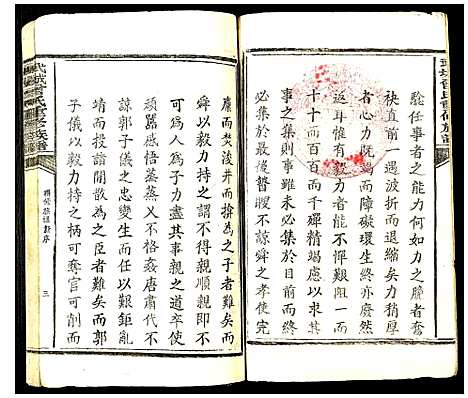 驗任事者之能力何如力之勝者奮
袂直前一遇波折而退縮矣力稍厚
者心力既竭而障礙環生終亦廢然
返耳惟有毅力者能不憚艱阻一而
十十而百而千殫精竭慮以求其
事之集則事雖未必集於目前而終
必集於最後昔瞍不諒舜之孝使完
廩而焚浚井而揜為之子者難矣而
舜以毅力持之謂不得親即不
可以為人子力盡其事親之道卒使
頑嚚感悟烝烝乂不格姦唐肅代不
諒郭子儀之忠變生而任以艱鉅亂
靖而投諸閒散為之臣者難矣而郭
子儀以毅力持之柄可奪官可削
武城曾氏重修族譜
三